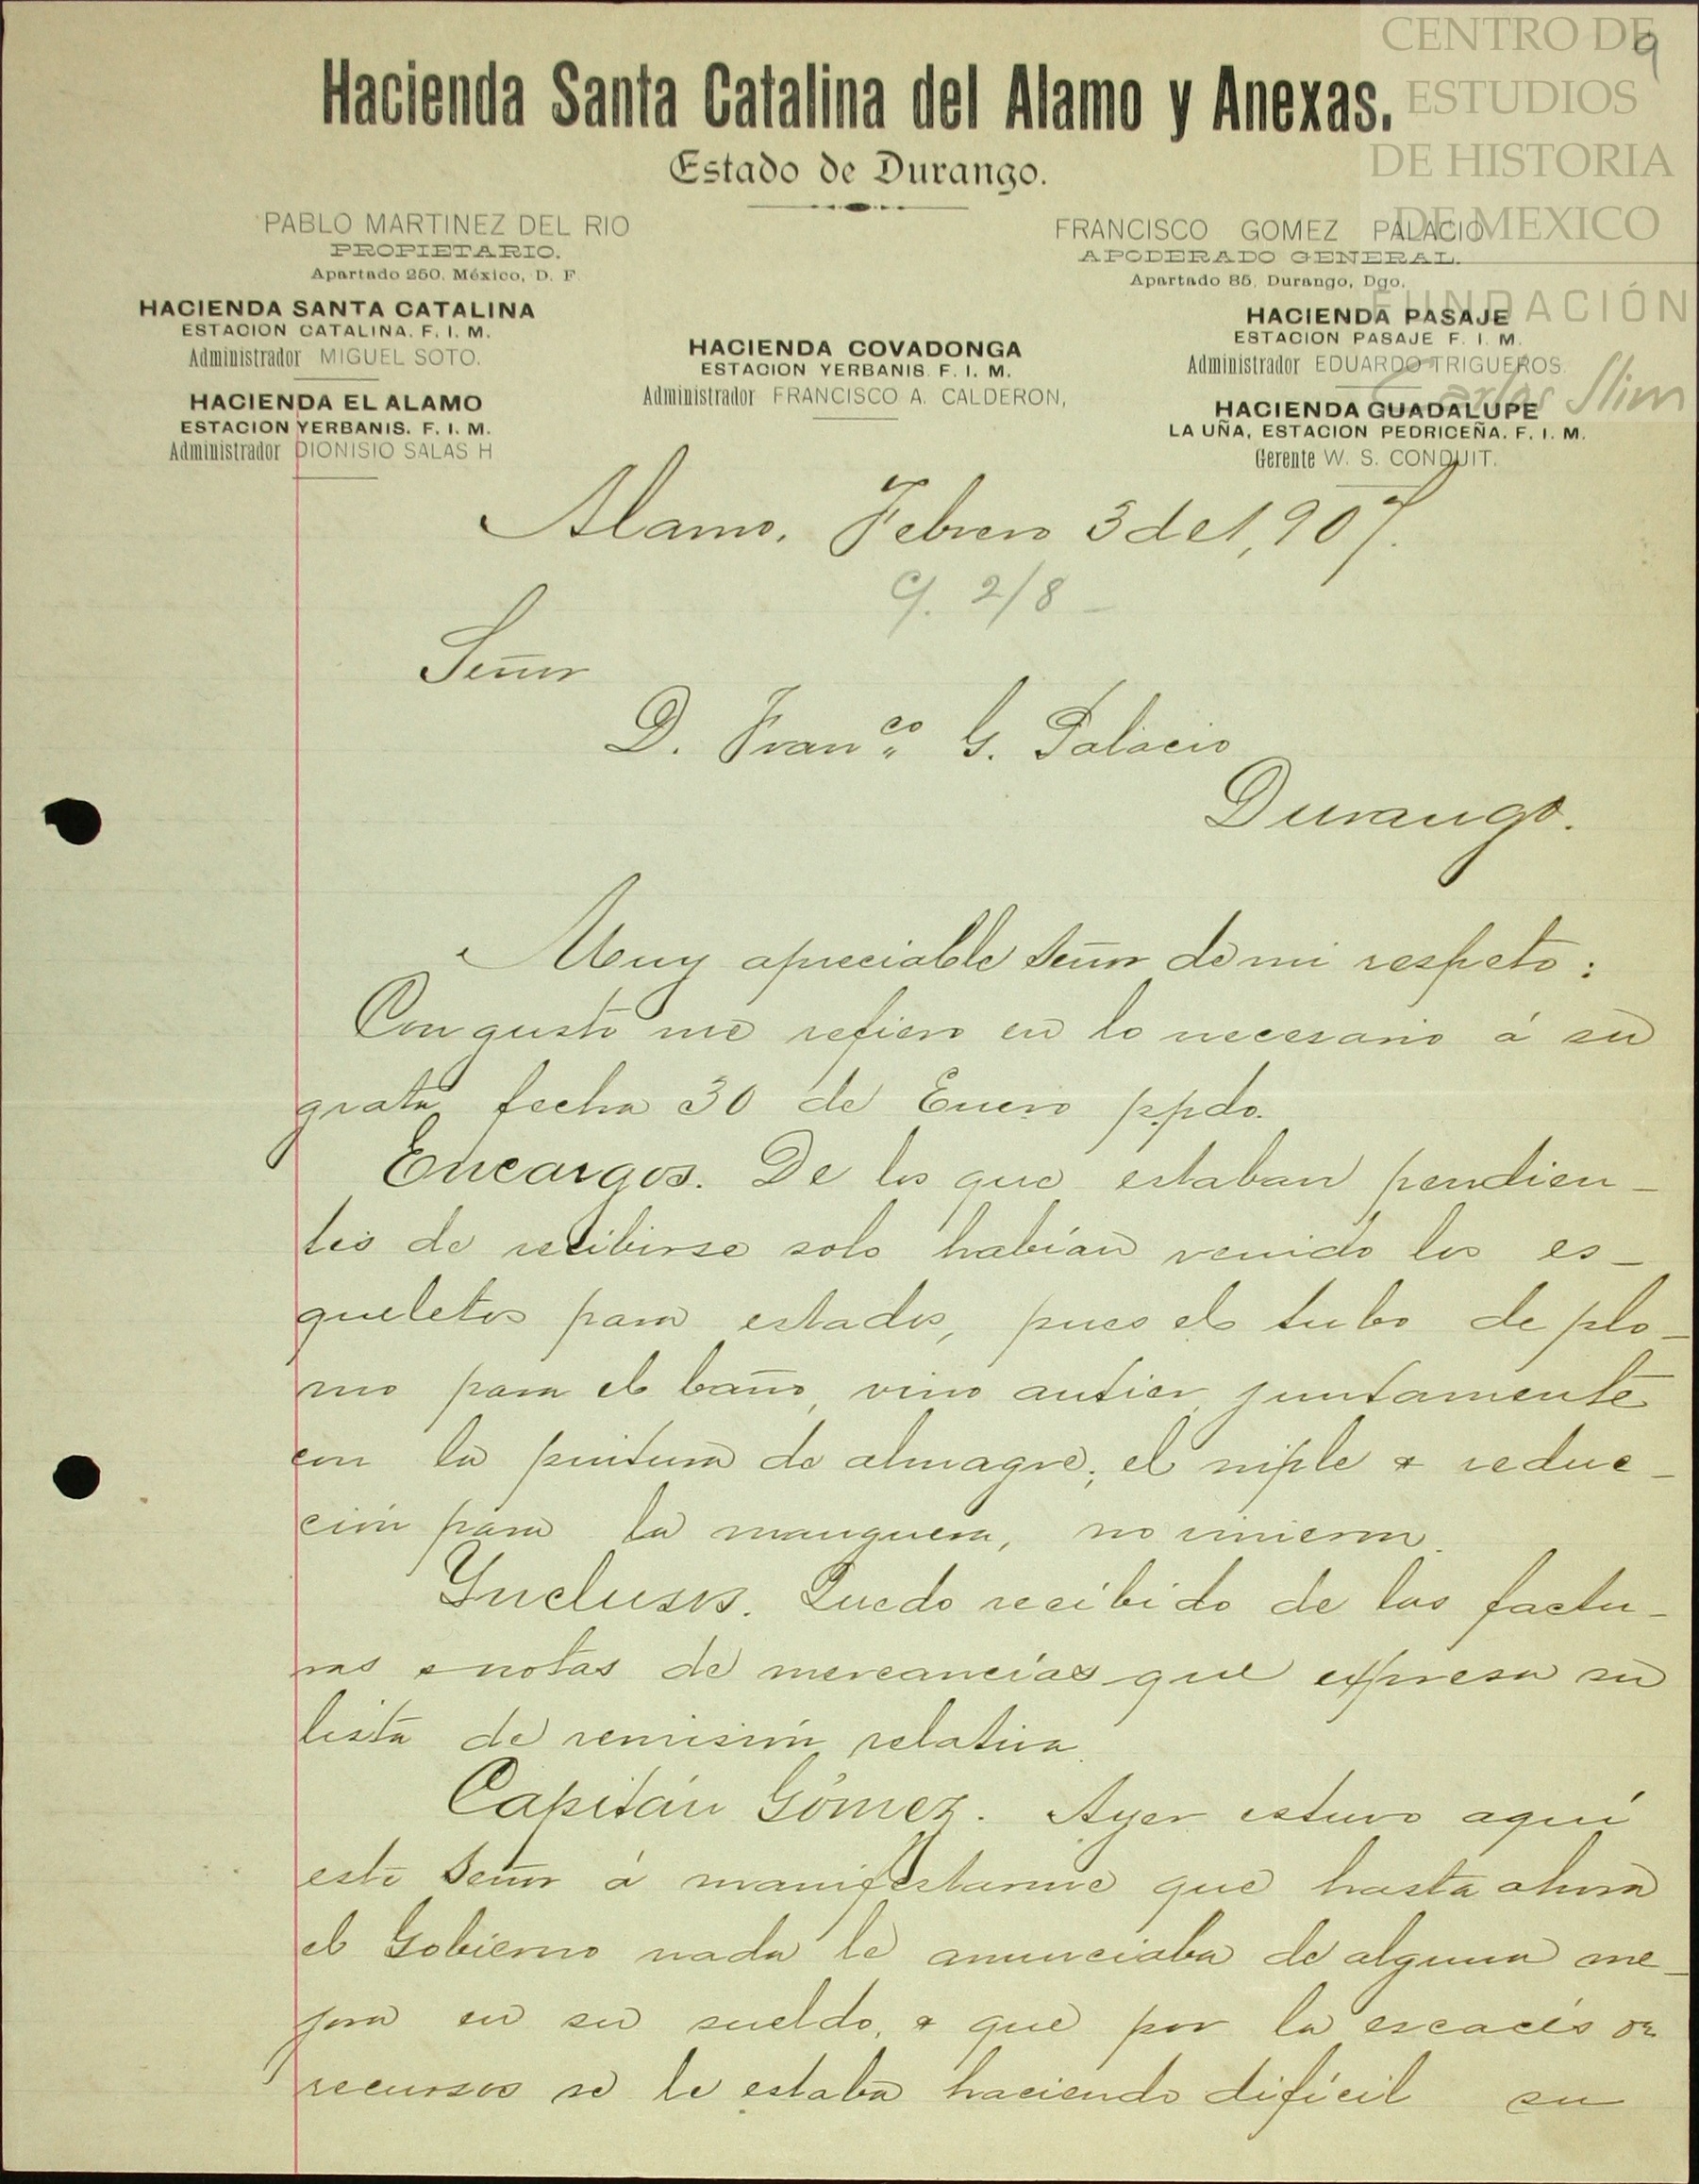 CENTRO DE
ESTUDIOS
DE HISTORIA
DE MEXICO
FUNDACIÓN
Carlos Slim
9
Hacienda Santa Catalina del Alamo y Anexas.
Estado de Durango.
PABLO MARTINEZ DEL RIO
PROPIETARIO.
Apartado 250. México, D. F.
FRANCISCO GOMEZ PALACIO
APODERADO GENERAL.
Apartado 85, Durango, Dgo.
HACIENDA SANTA CATALINA
ESTACION CATALINA. F. I. M.
Administrador MIGUEL SOTO.
HACIENDA EL ALAMO
ESTACION YERBANIS. F. I. M.
Administrador DIONISIO SALAS H
HACIENDA COVADONGA
ESTACION YERBANIS F. I. M.
Administrador FRANCISCO A. CALDERON,
HACIENDA PASAJE
ESTACION PASAJE F. I. M.
Administrador EDUARDO TRIGUEROS.
HACIENDA GUADALUPE
LA UÑA, ESTACION PEDRICEÑA. F. I. M.
Gerente W. S. CONDUIT.
Alamo. Febrero 3 de 1,907.
C/. 2/8 -
Señor
D. Franco. G. Palacio
Durango.
Muy apreciable Señor de mi respeto:
Con gusto me refiero en lo necesario á su
grata fecha 30 de Enero p.pdo.
Encargos. De los que estaban pendien-
tes de recibirse solo habían venido los es-
queletos para estados, pues el tubo de plo-
mo para el baño, vino antier juntamente
con la pintura de almagre; el niple & reduc-
ción para la manguera, no vinieron.
Ynclusos. Quedo recibido de las factu-
ras & notas de mercancías que expresa su
lista de remisión relativa.
Capitán Gómez. Ayer estuvo aquí
este Señor á manifestarme que hasta ahora
el Gobierno nada le anunciaba de alguna me-
jora en su sueldo, & que por la escacés de
recursos se le estaba haciendo difícil su